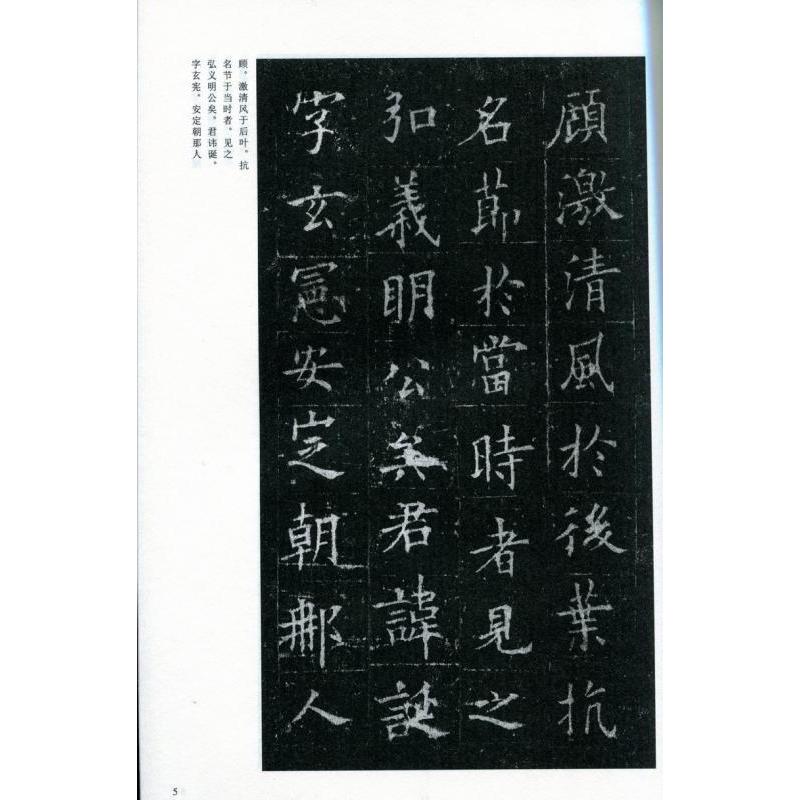 顧激清風於後葉抗
名節於當時者見之
弘義明公矣君諱誕
字玄憲安定朝那人
顾。激清风于后叶。抗
名节于当时者。见之
弘义明公矣。君讳诞。
字玄宪。安定朝那人
5